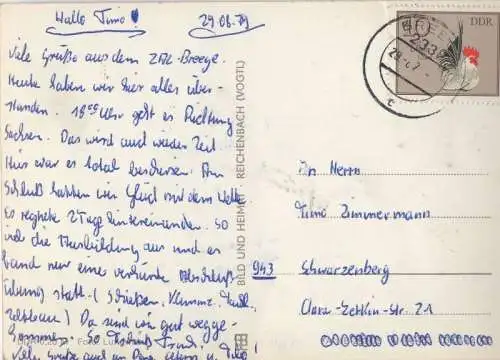 Hallo Timo!
29.08.79
Viele Grüße aus dem ZAL-Breege.
Heute haben wir hier alles über-
standen. Uhr geht es Richtung
Sachsen. Das wird auch wieder Zeit
Hier war es total beschissen. Am
Schluß hatten wir Glück mit dem Wetter
Es regnete 2 Tage hintereinander. So
viel die Ausbildung aus und es
fand nur eine verkürzte Abschluß-
Übung statt. (Schießen,
) Da sind wir gut wegge-
kommen. So Tschüß
viele Grüße auch an Deine Eltern u.
BILD UND HEIMAT REICHENBACH (VOGTL)
DDR
BREEGE
2339
An Herrn
Timo Zimmermann
943 Schwarzenberg
Clara-Zetkin-Str. 21